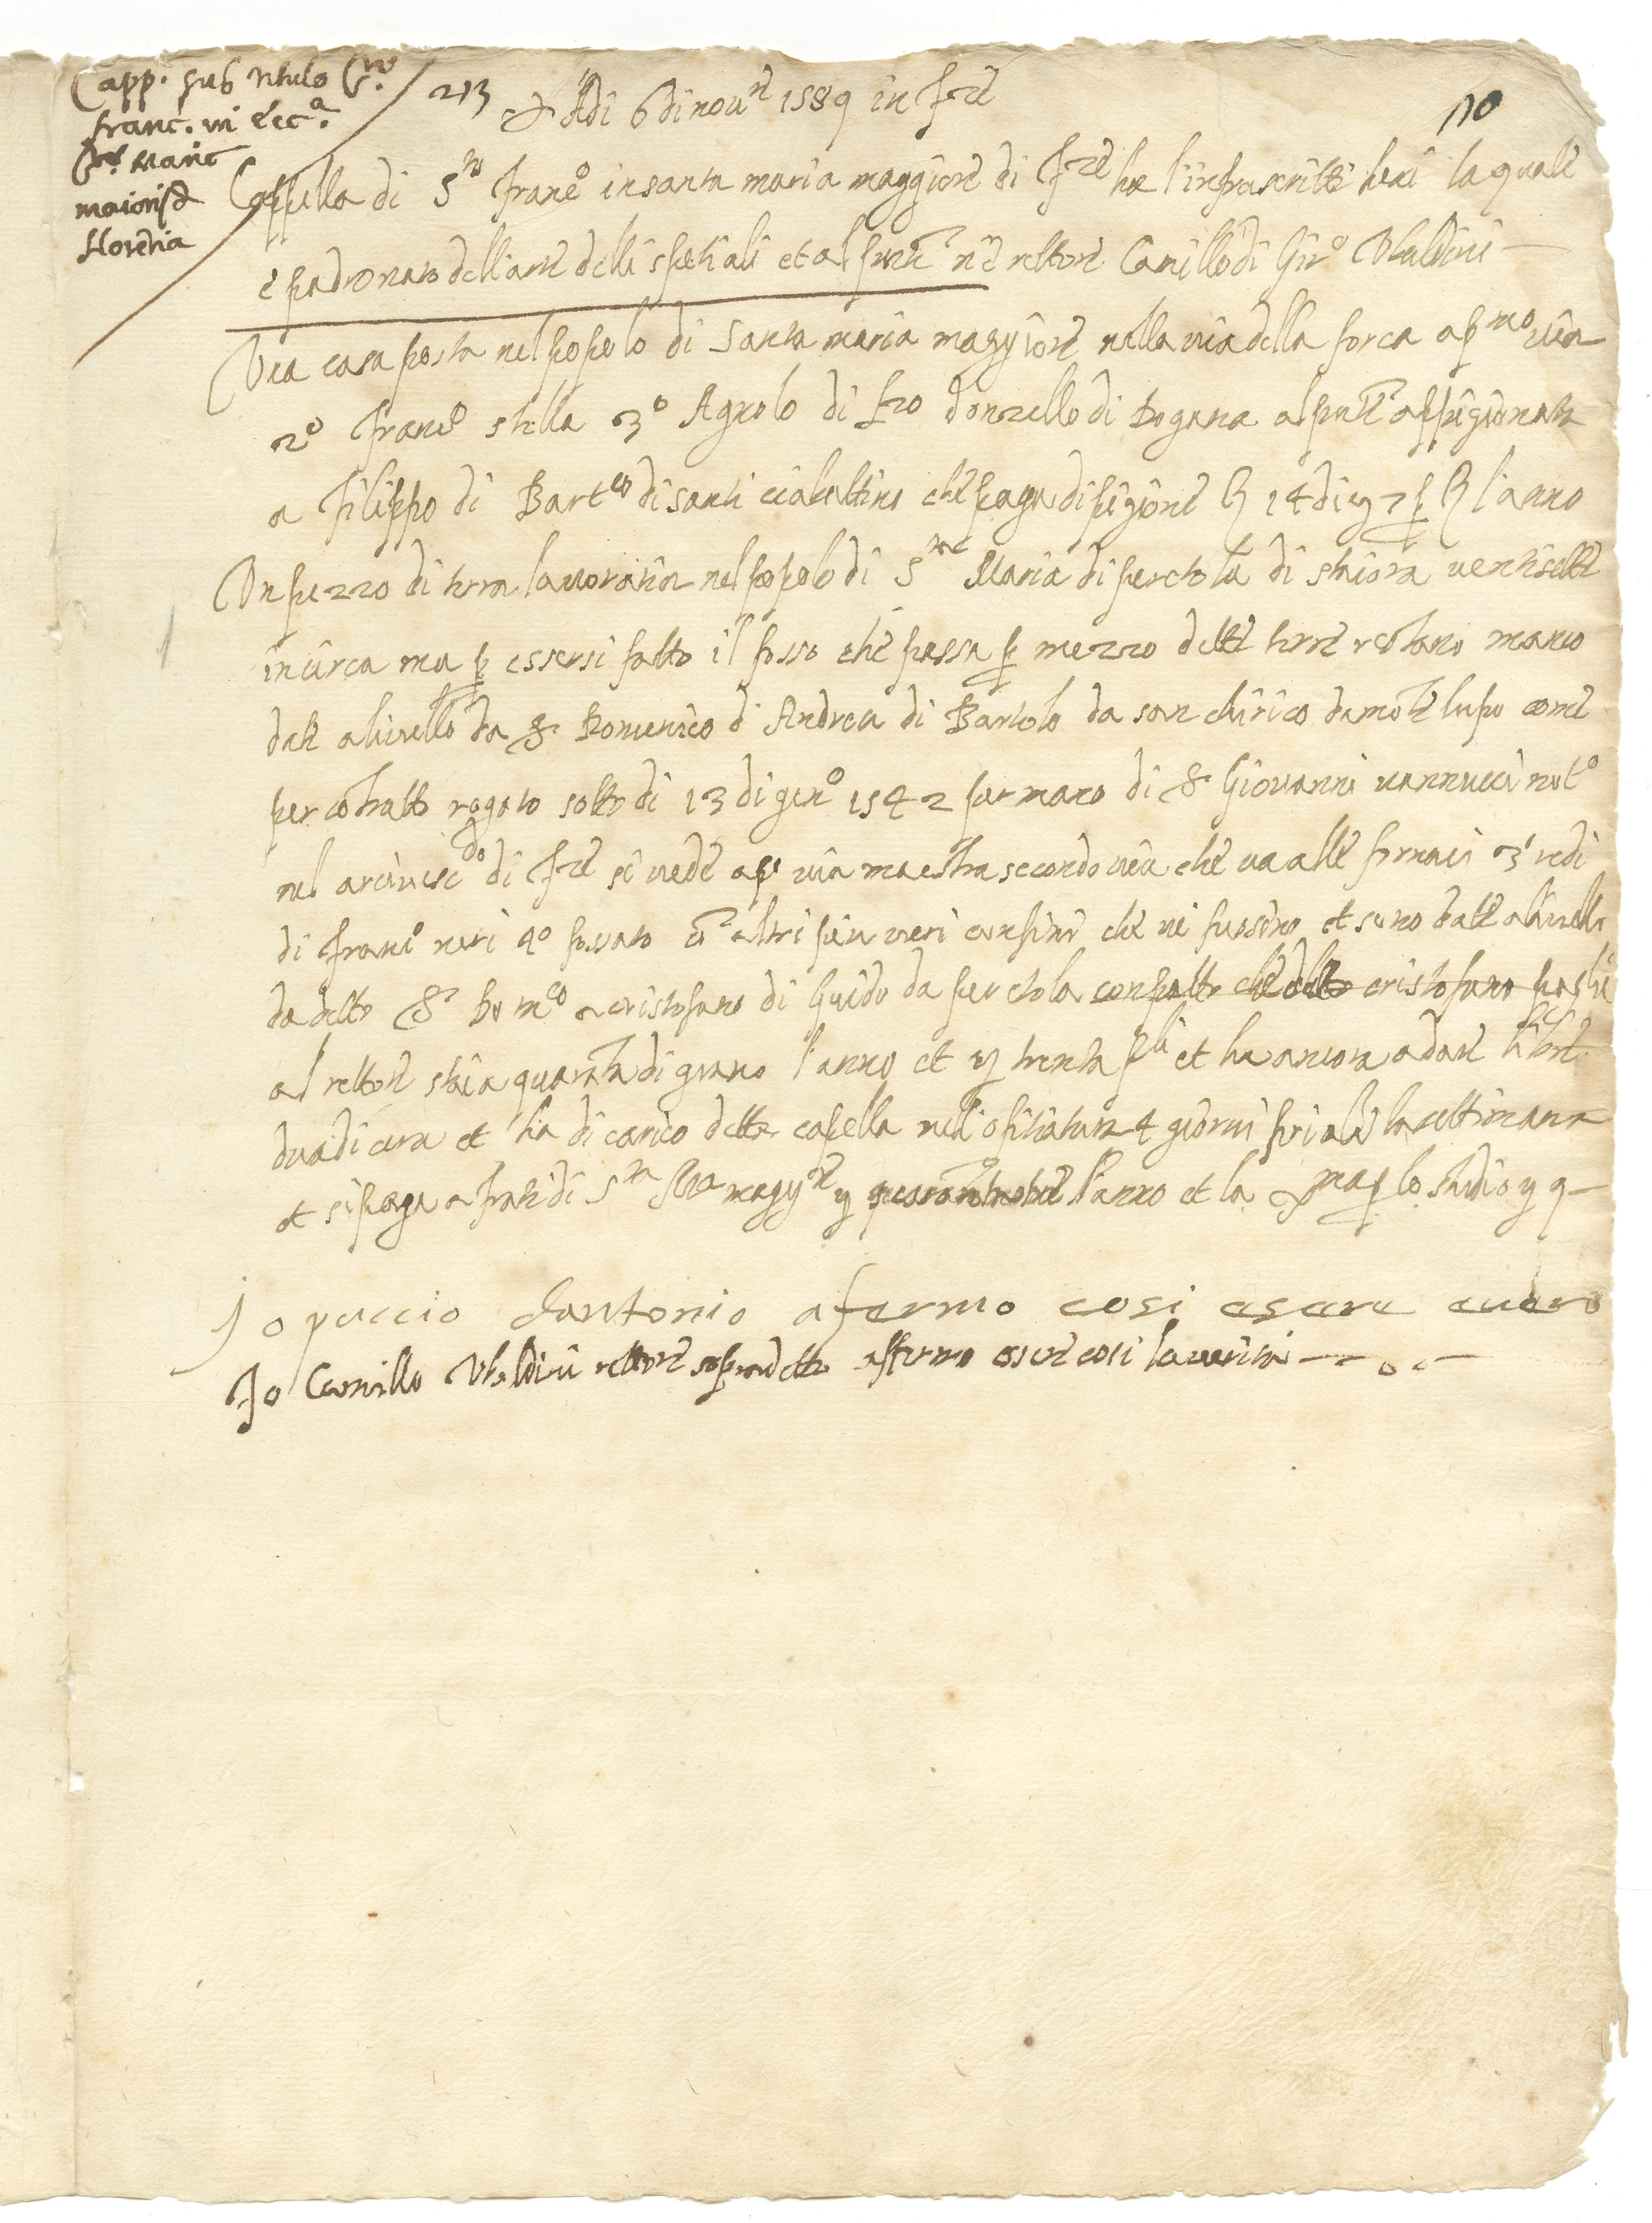 Capp. sub titulo S.ti
franc. in ecc.a
S.te Marie
maioris de
florentia
213
+ Adi 6 di nou.re 1589 in f.ze
110
Cappella di S.to franc.o in santa maria maggiore di f.ze ha l'infrascritti beni la quale
è padronato dell'arte delli spetiali et al pnte n'è rettore Camillo di Gir.o Vbaldini
Vna casa posta nel popolo di Santa maria maggiore nella via della forca a p.mo via
2.o franc.o stella 3.o Agnolo di f.co donzello di Dogana al pnte appigionata
a filippo di Bart.eo di santi ciabattino che paga di pigione 14 di 7 l'anno
Vn pezzo di terra lauoratia nel popolo di S.ta Maria di peretola di staiora uentisette
incirca ma p essersi fatto il fosso che passa p mezzo dette terre restano manco
date a liuello da S. Domenico d'Andrea di Bartolo da san chirico da mote lupo come
per cotratto rogato sotto di 13 di gen.o 1542 per mano di S. Giouanni uannucci not.o
nel arciuesc.do di f.ze si uede a p.o via maestra secondo uia che ua alle fornaci 3.o redi
di franc.o neri 4.o fossato et altri piu ueri confini che ui fussino et sono date a liuello
da detto S. Dom.co a cristofano di Guido da peretola con patto che detto cristofano paghi
al rettore staia quaranta di grano l'anno et trenta p.li et ha ancora a dare libre
dua di cera et ha di carico detta capella nell'ofitiatura 4 giorni feriali la settimana
et si paga a frati di S.ta M.a magg.re l'anno et la p lo studio
Jo puccio dantonio afermo cosi esere euero
Jo Camillo Vbaldini rettore sopradetto affermo essere cosi la uerita